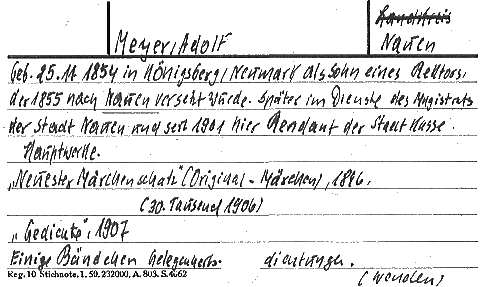 Landkreis
Meyer, Adolf Nauen
geb. 25.11 1854 in Königsberg/Neumark als Sohn eines Rektors,
der 1855 nach Nauen versetzt wurde. Später im Dienste des Magistrats
der Stadt Nauen und seit 1901 hier Rendant der Stadtkasse.
Hauptwerke.
„Neuester Märchenschatz" (Original-Märchen), 1896.
(30. Tausend 1906)
„Gedichte", 1907
Einige Bändchen Gelegenheits- dichtungen.
Reg. 10 Stichnote. 1. 50. 232000. A. 803. S. 4062
(wenden)